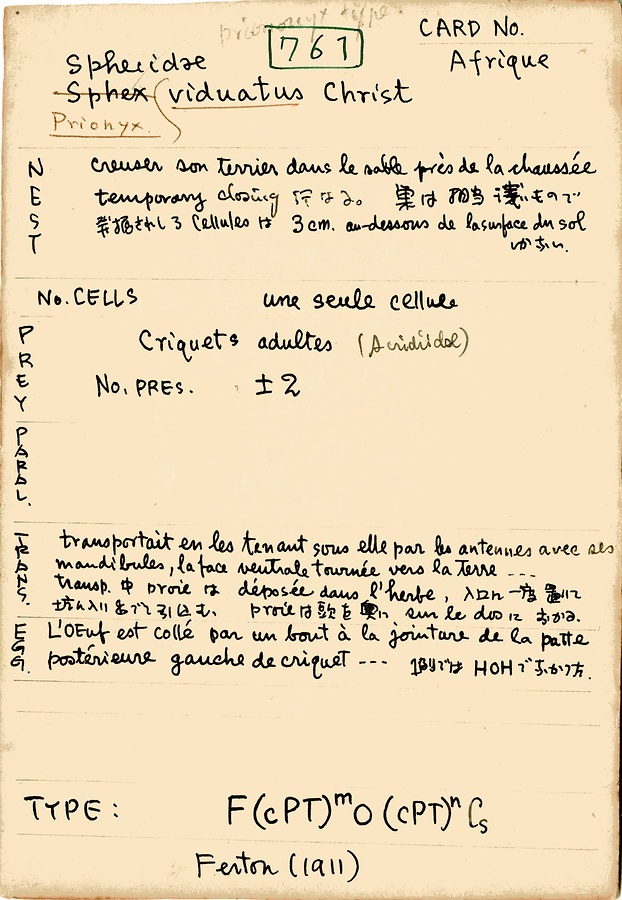 prionyx type.
767
CARD No.
Sphecidae
Afrique
Sphex viduatus Christ
Prionyx.
NEST
creuser son terrier dans le sable près de la chaussée
temporary closing 行なる。 巣は 相当 浅いもので
発掘されし3 Cellules は 3cm. au-dessous de la surface du sol
No. CELLS une seule cellule
PREY
Criquets adultes (Acridiidae)
No. PRES. ±2
PARAL.
TRANS.
transportait en les tenant sous elle par les antennes avec ses
mandibules, la face ventrale tournée vers la terre ---
transp. 中 proie は déposée dans l'herbe, 入口に一度置いて
坑に入り 引込む. proie は頭を奥に sur le dos に おかる.
EGG.
L'OEuf est collé par un bout à la jointure de la patte
postérieure gauche de criquet --- 1例では HOH
TYPE: F(cPT)ᵐO(cPT)ⁿCs
Ferton (1911)